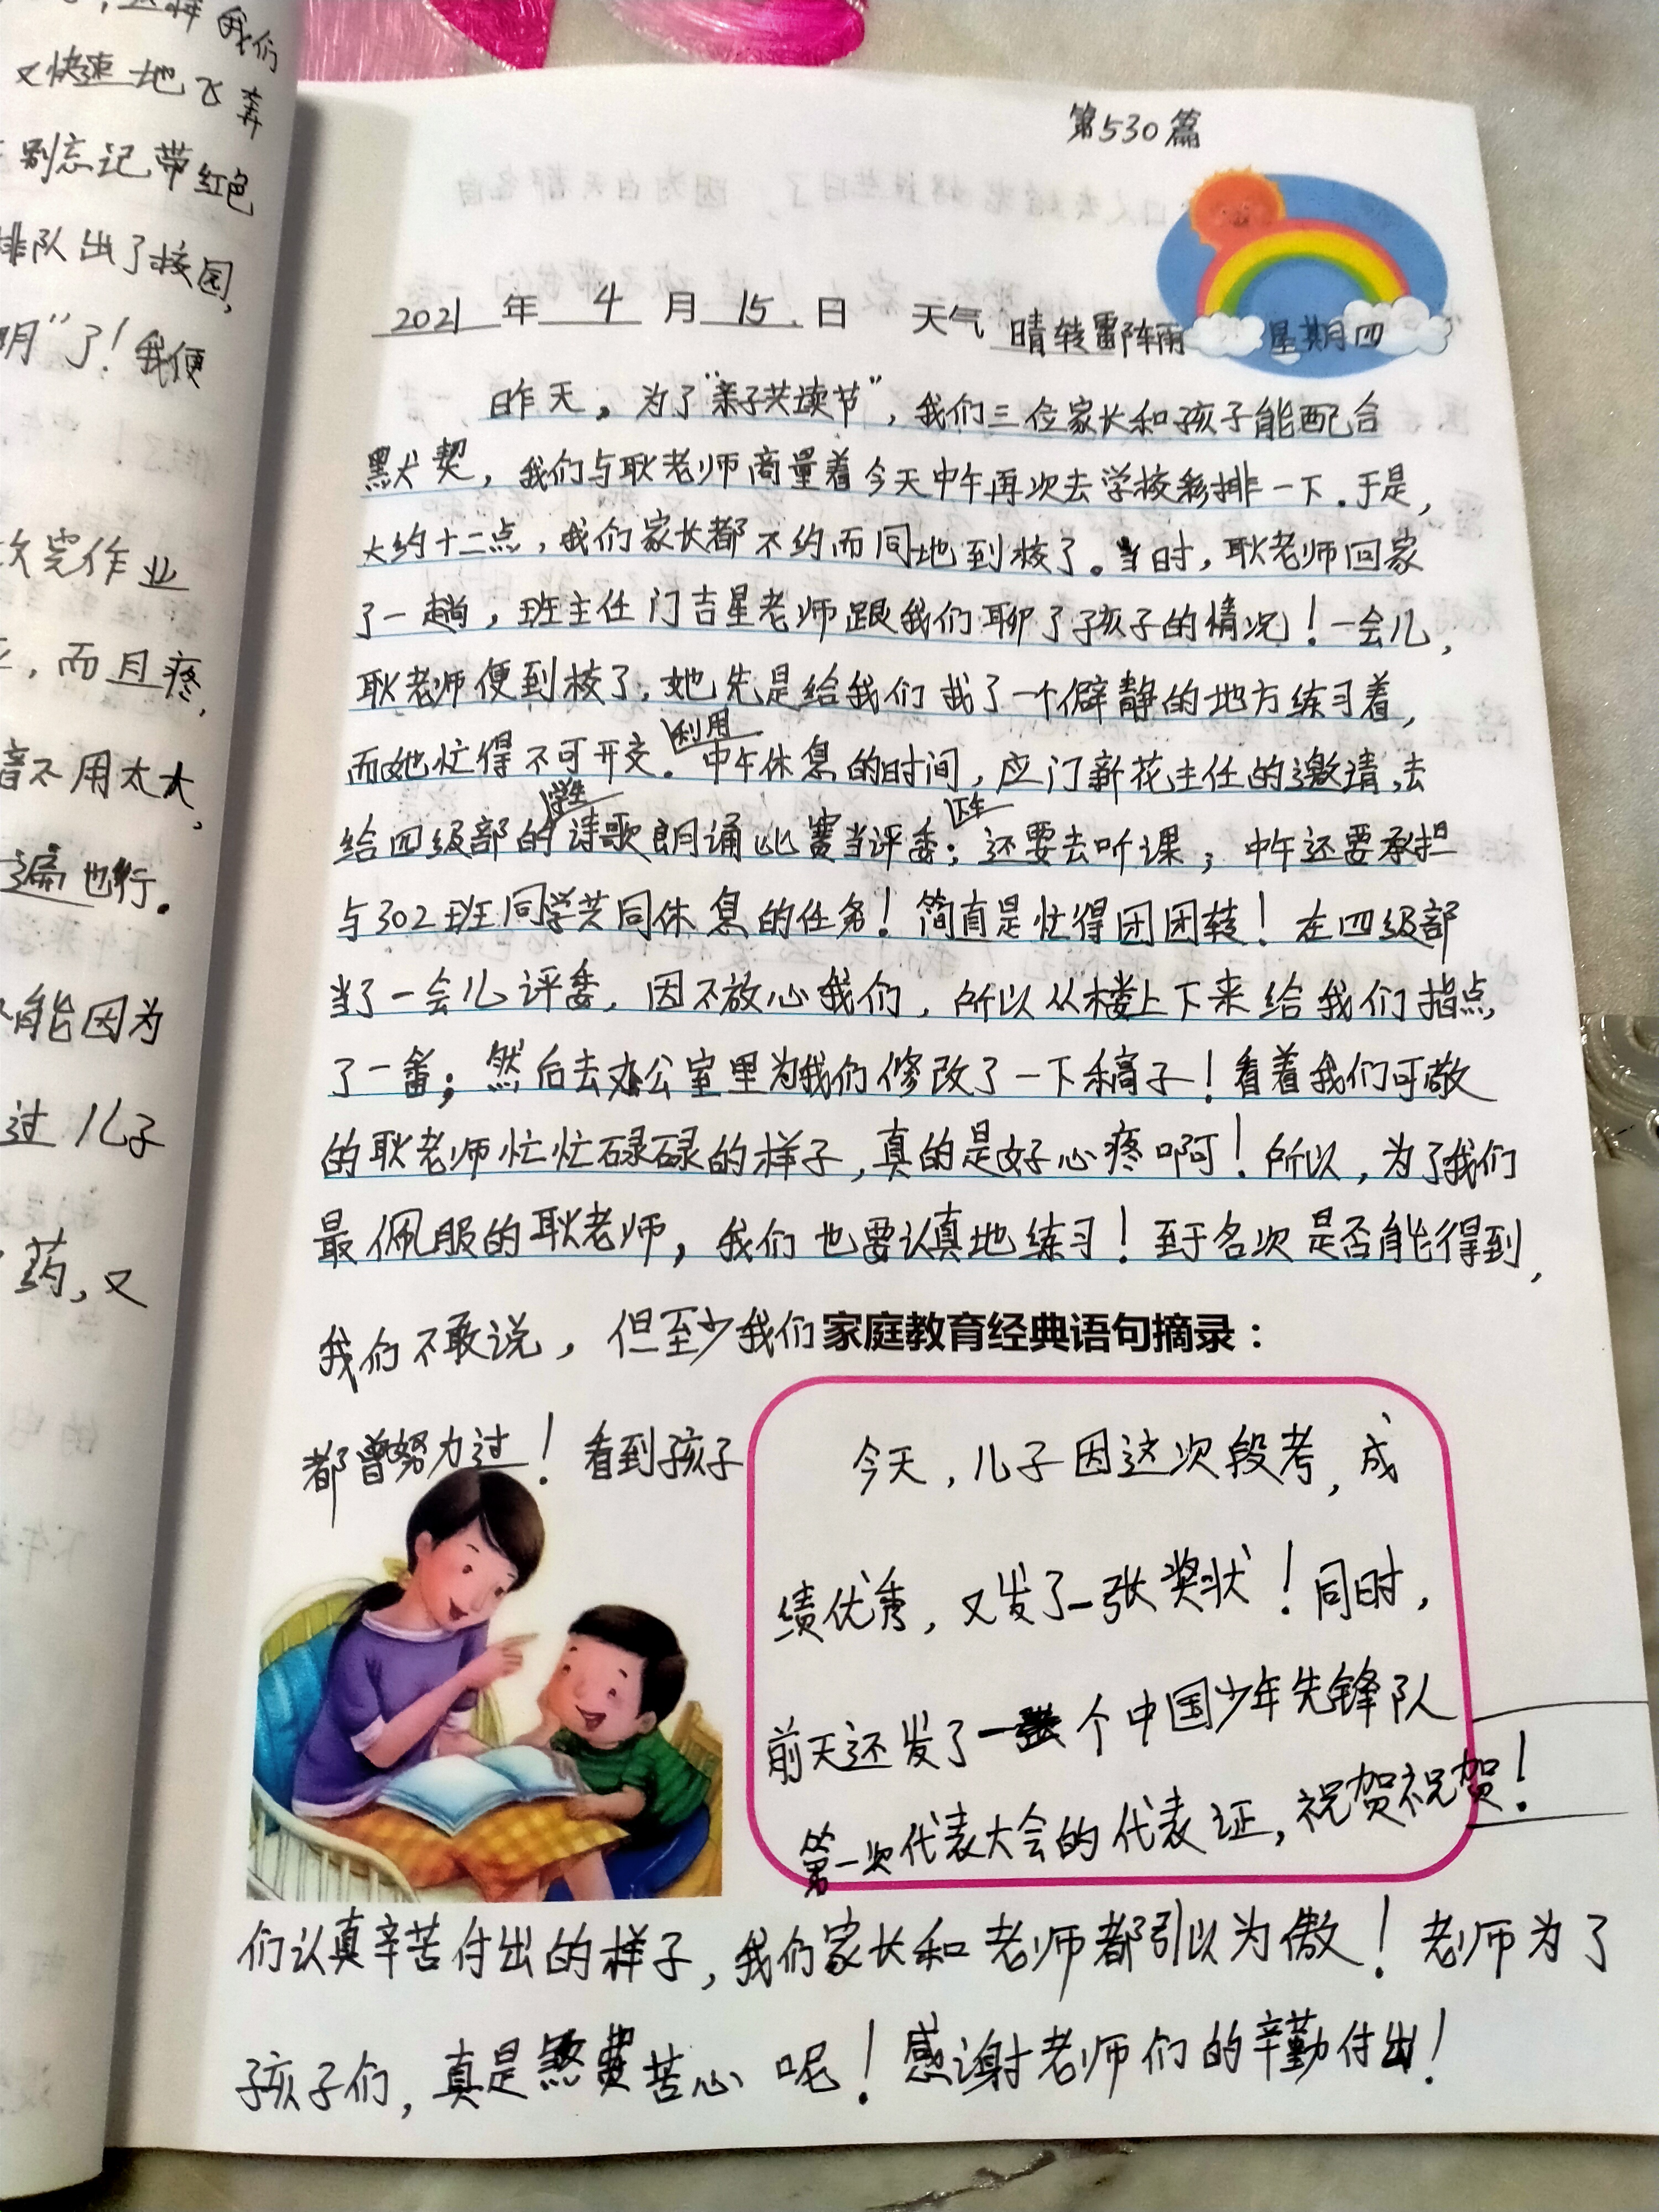 我们
又快速地飞奔
别忘记带红色
排队出了校园,
明”了!我便
完作业
而且疼,
音不用太大,
遍也行。
能因为
过儿子
药,又
第530篇
2021年4月15日 天气 晴转雷阵雨 星期四
昨天,为了“亲子共读节”,我们三位家长和孩子能配合
默契,我们与耿老师商量着今天中午再次去学校彩排一下.于是,
大约十二点,我们家长都不约而同地到校了。当时,耿老师回家
了一趟,班主任门吉星老师跟我们聊了孩子的情况!一会儿,
耿老师便到校了,她先是给我们找了一个僻静的地方练习着,
而她忙得不可开交。利用中午休息的时间,应门新花主任的邀请,去
给四级部的学生诗歌朗诵比赛当评委;下午还要去听课;中午还要承担
与302班同学共同休息的任务!简直是忙得团团转!在四级部
当了一会儿评委,因不放心我们,所以从楼上下来给我们指点
了一番;然后去办公室里为我们修改了一下稿子!看着我们可敬
的耿老师忙忙碌碌的样子,真的是好心疼啊!所以,为了我们
最佩服的耿老师,我们也要认真地练习!至于名次是否能得到,
我们不敢说,但至少我们
都曾努力过!看到孩子
家庭教育经典语句摘录:
今天,儿子因这次段考,成
绩优秀,又发了一张奖状!同时,
前天还发了一个中国少年先锋队
第一次代表大会的代表证,祝贺祝贺!
们认真辛苦付出的样子,我们家长和老师都引以为傲!老师为了
孩子们,真是煞费苦心呢!感谢老师们的辛勤付出!